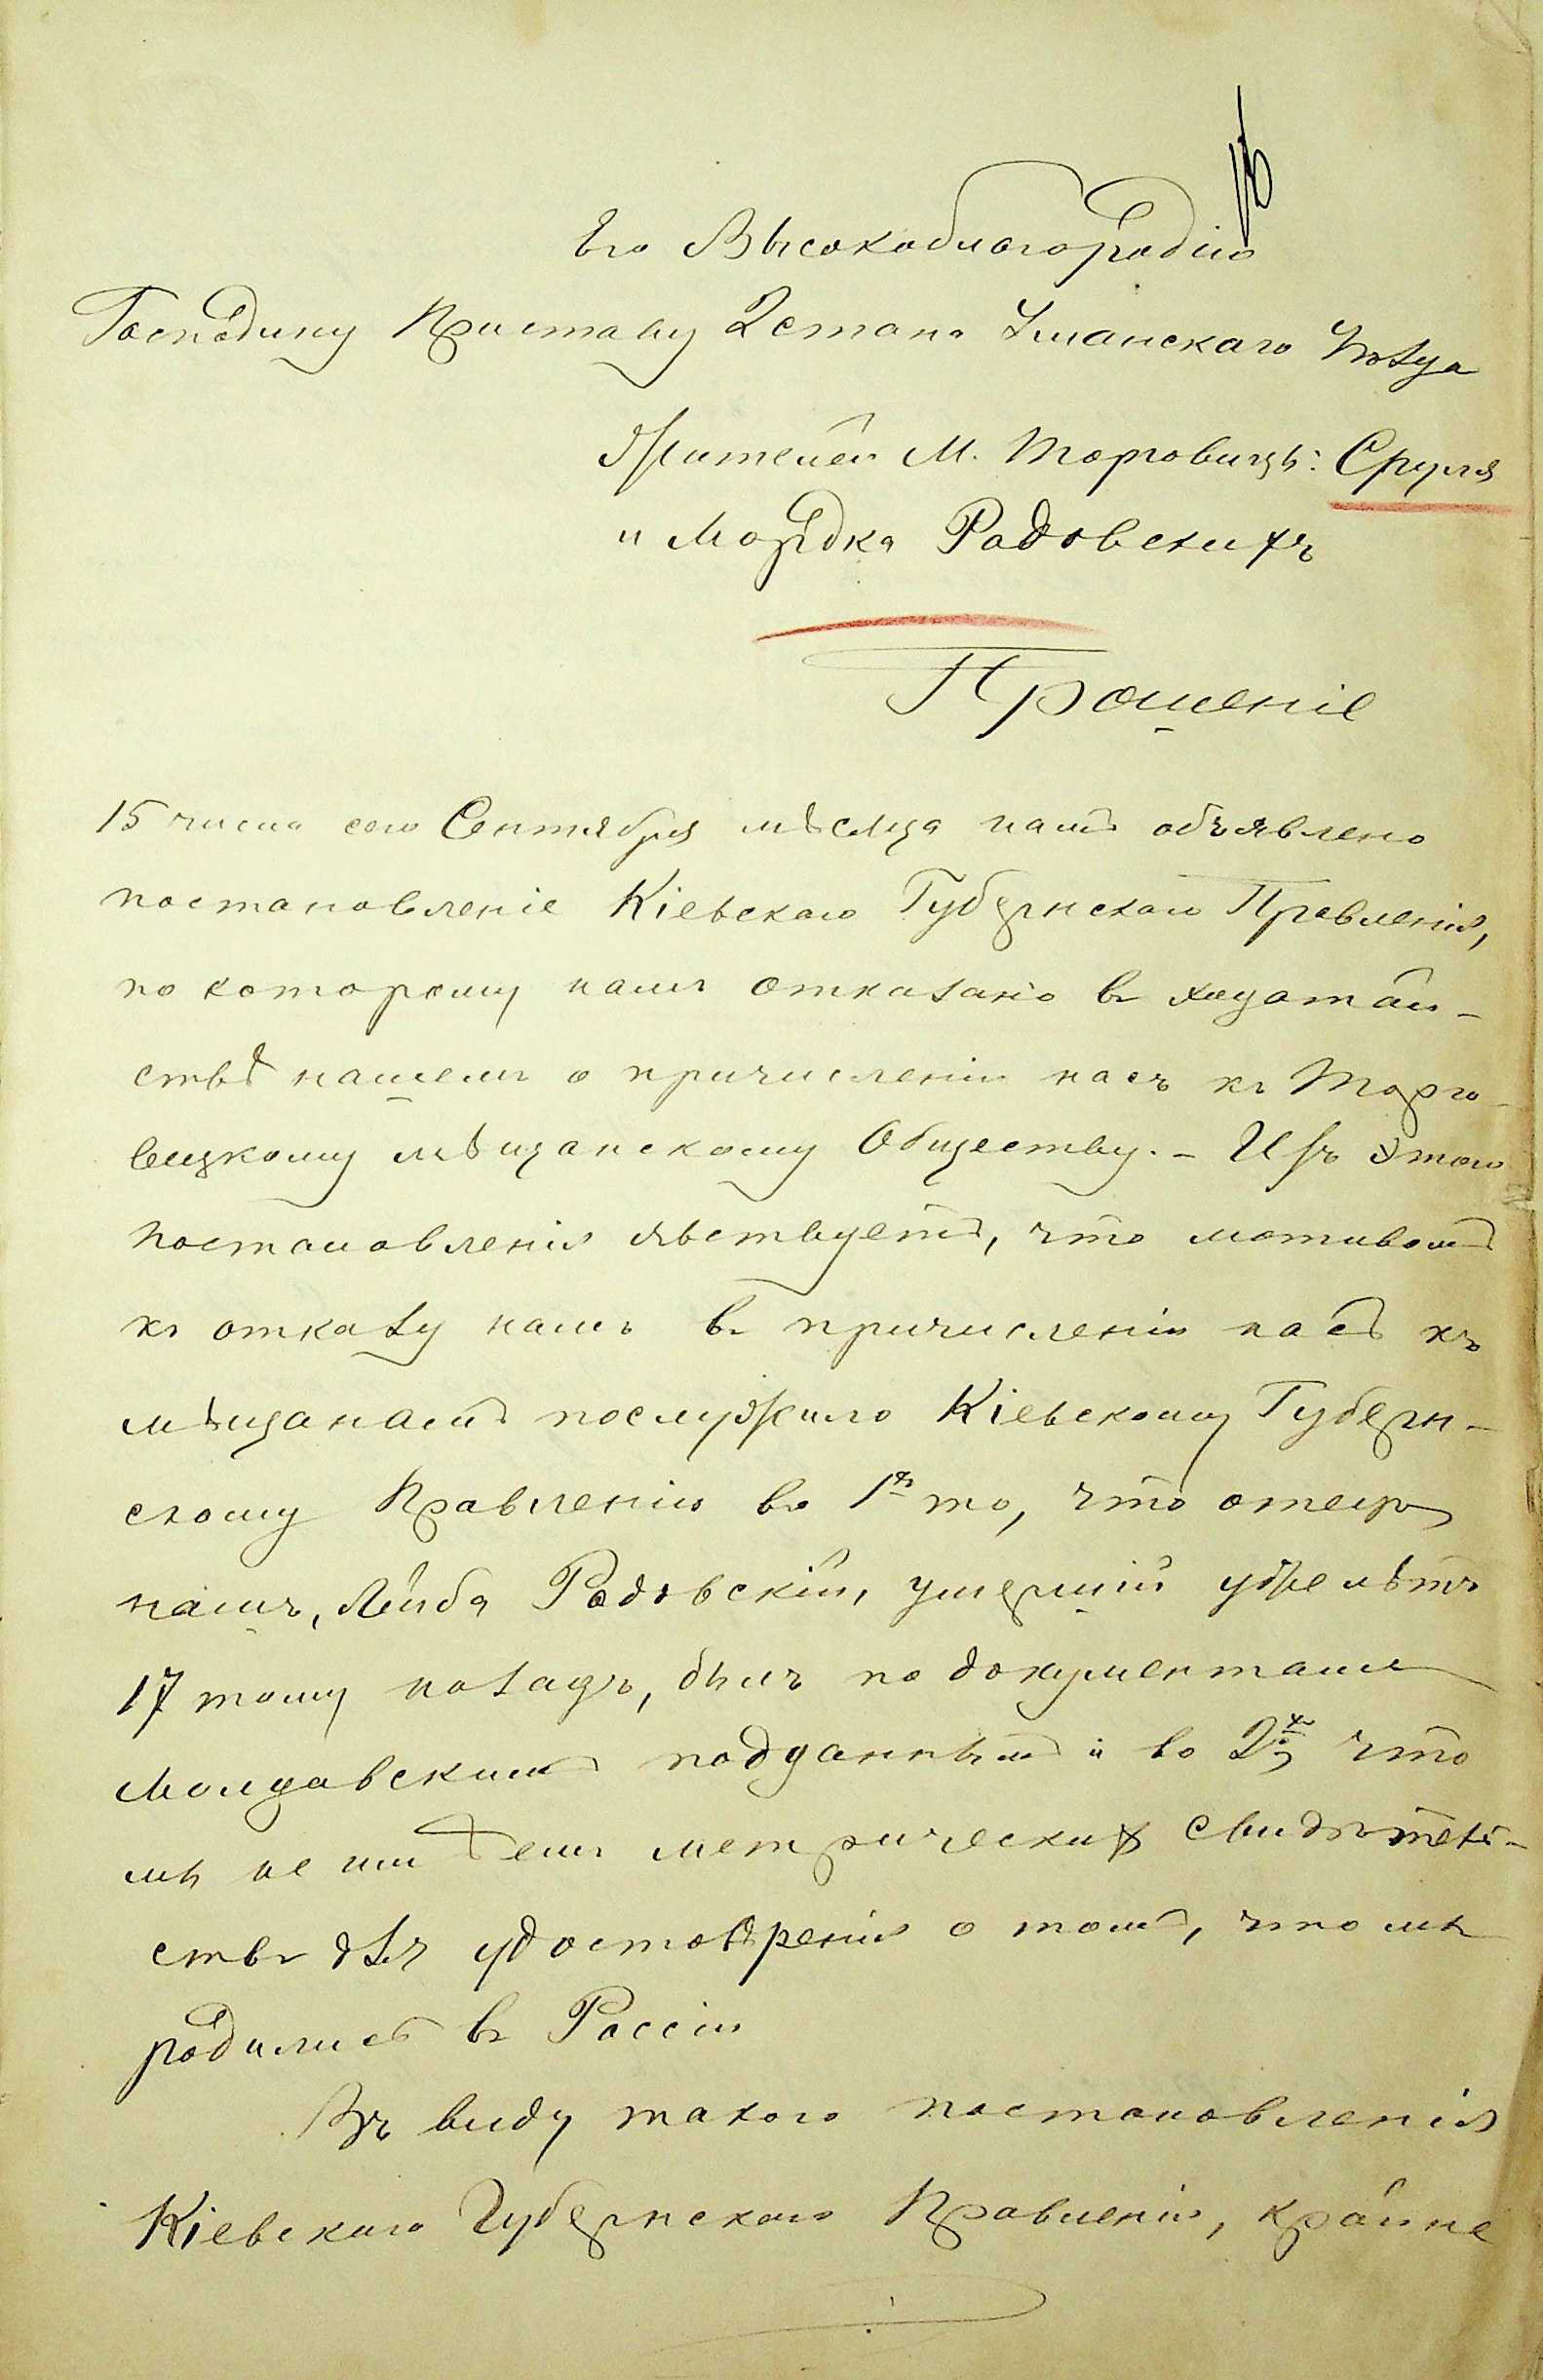 Его Высокоблагородію
Господину Приставу 2 стана Уманскаго Уѣзда
Жителей М. Торговицы: Сруля
и Мордка Радовскихъ
Прошеніе
15 числа сего Сентября мѣсяца намъ объявлено
постановленіе Кіевскаго Губернскаго Правленія,
по которому намъ отказано въ ходатай-
ствѣ нашемъ о причисленіи насъ къ Торго-
вицкому мѣщанскому Обществу. - Изъ этого
постановленія явствуетъ, что мотивомъ
къ отказу намъ въ причисленіи насъ къ
мѣщанамъ послужило Кіевскому Губерн-
скому Правленію во 1хъ то, что отецъ
нашъ, Лейба Радовскій, умершій уже лѣтъ
17 тому назадъ, былъ по документамъ
Молдавскимъ подданнымъ и во 2хъ, что
мы не имѣемъ метрическихъ свидѣтель-
ствъ для удостовѣренія о томъ, что мы
родились въ Россіи
Въ виду такого постановленія
Кіевскаго Губернскаго Правленія, крайне